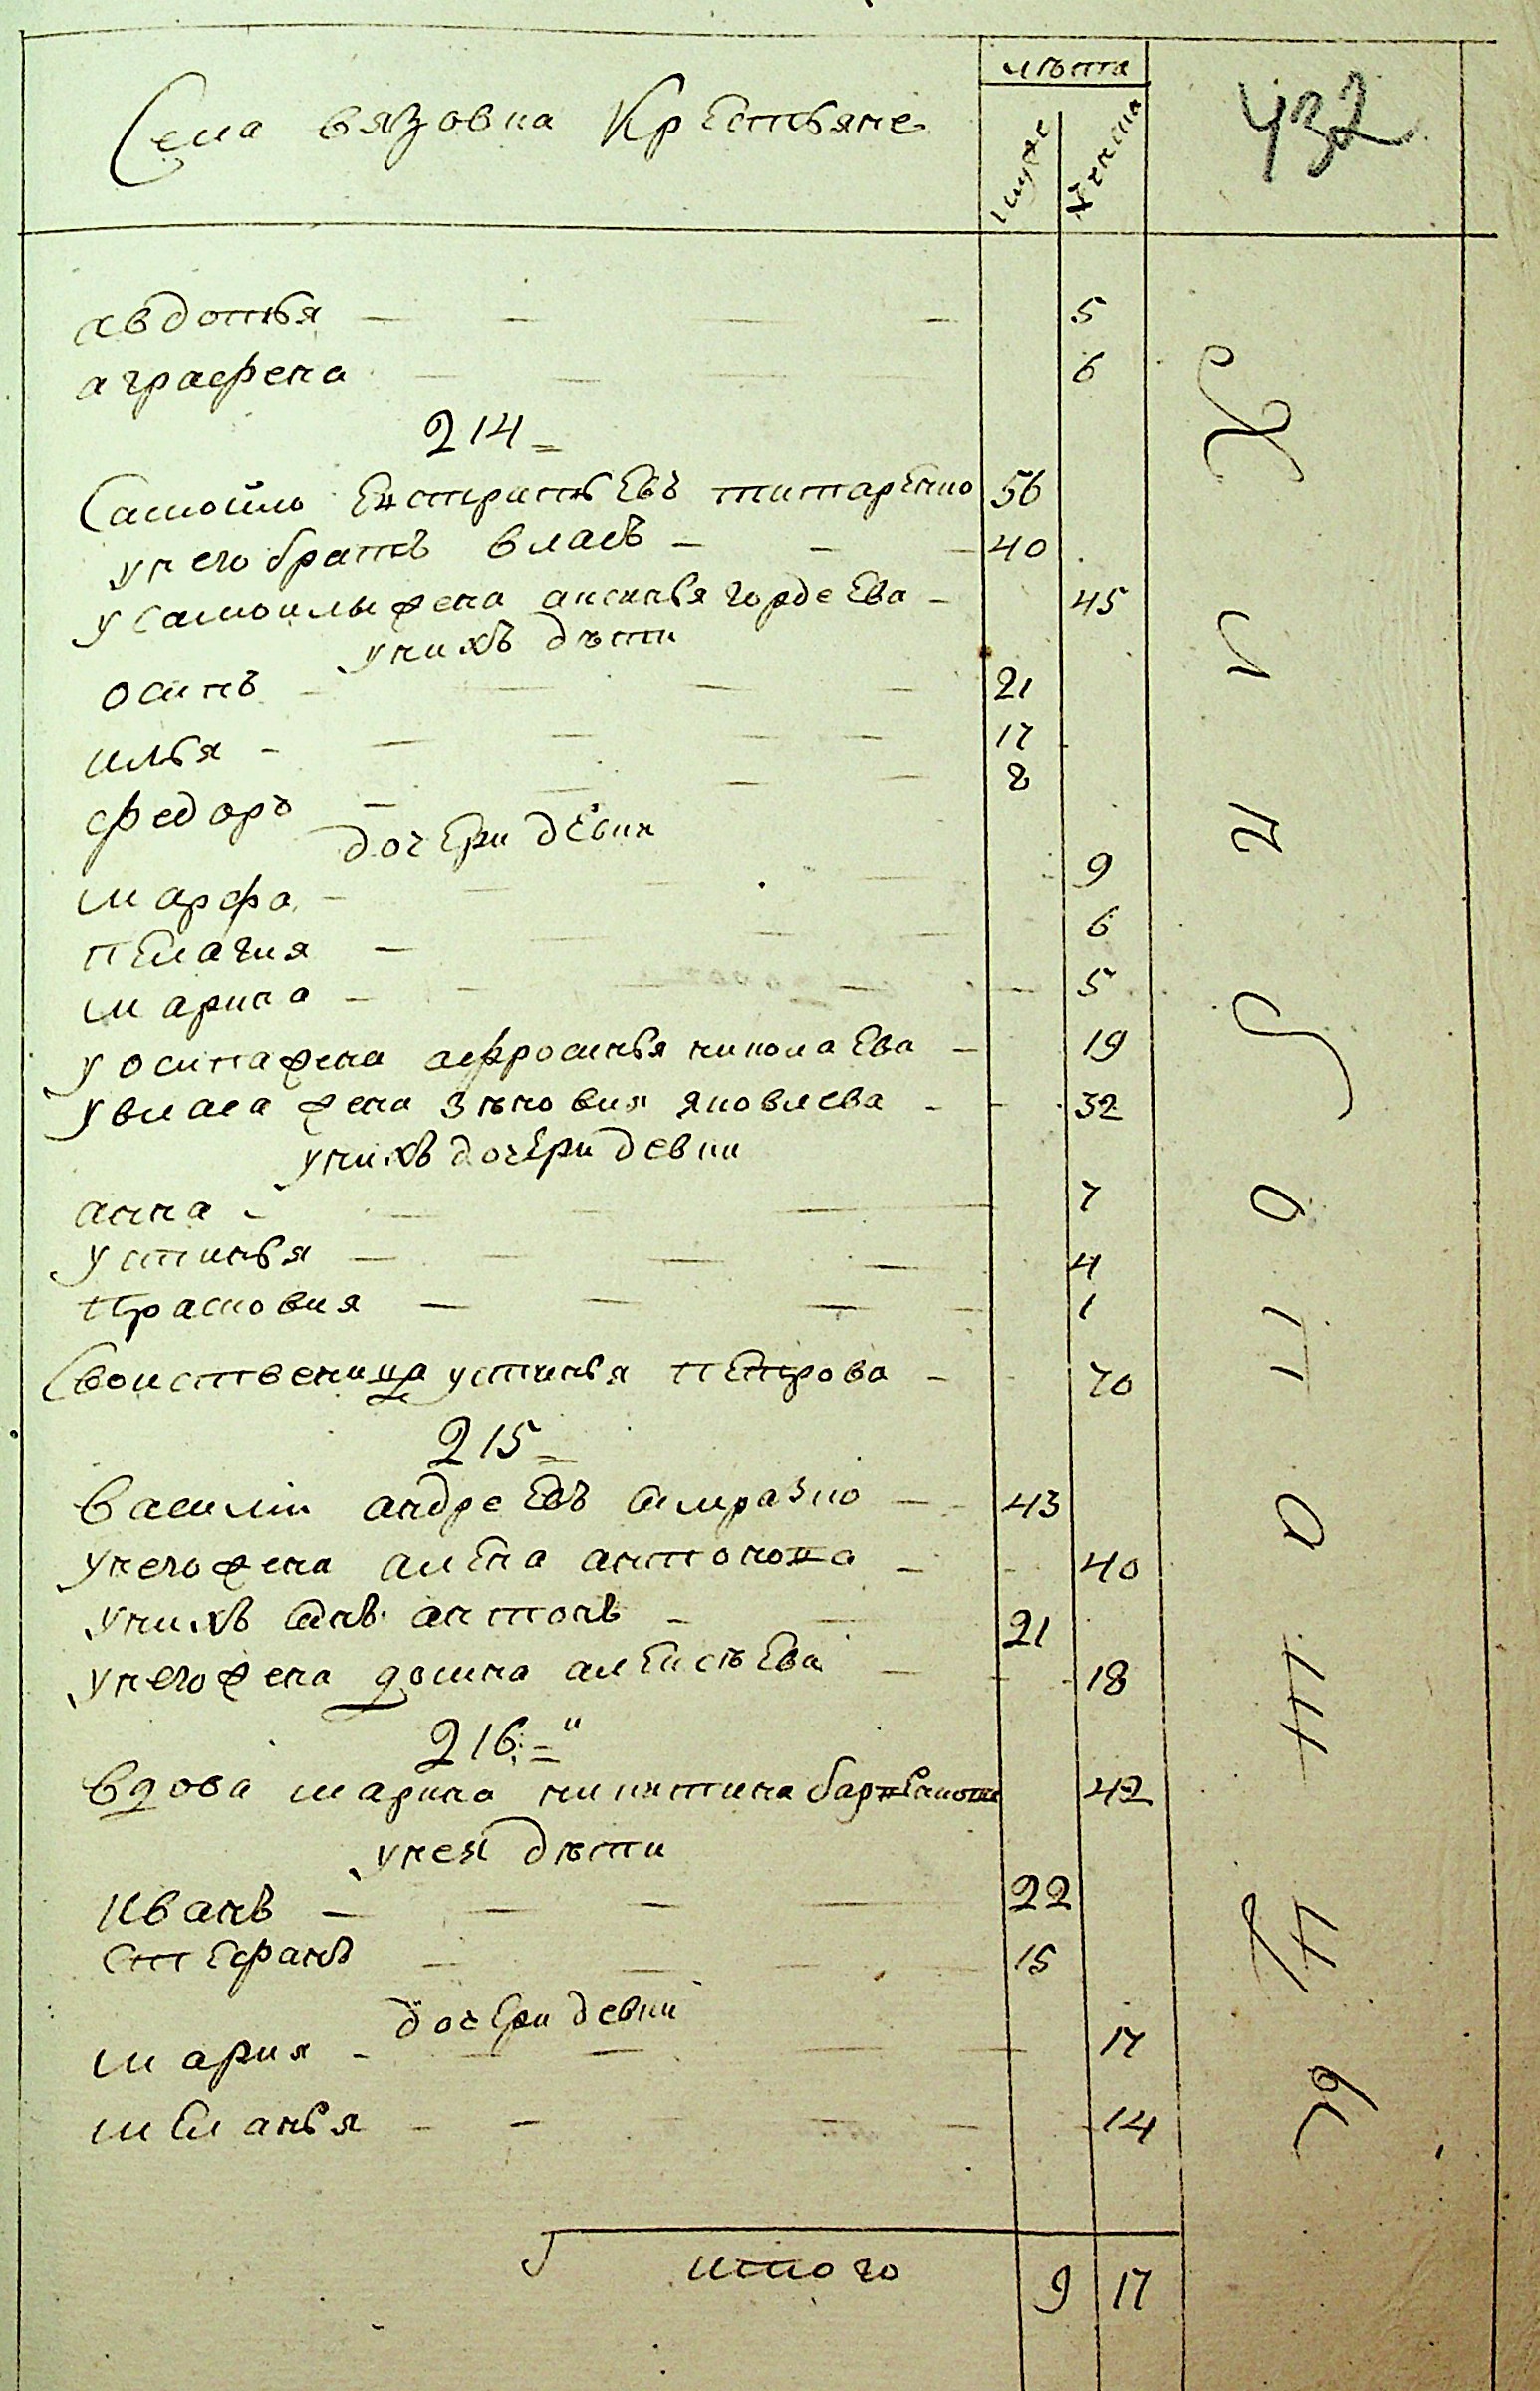 Села вязовка Крестьяне
лѣта
муже
женска
432
авдотья 5
аграфена 6
214
Самойло Евстратьевъ титаренко 56
у него братъ власъ 40
у самоилы жена аксинья гордеева 45
у нихъ дѣти
осипъ 21
илья 17
федоръ 8
дочери девки
марфа 9
пелагия 6
марина 5
у осипа жена афросинья николаева 19
у власа жена зѣновия яковлева 32
у нихъ дочери девки
анна 7
устинья 4
прасковия 1
Своиственица устинья петрова 70
215
василии андреевъ 43
у него жена алена антонова 40
у нихъ сынъ антонъ 21
у него жена домна алексѣева 18
216
вдова марина никитина 42
у нея дѣти
иванъ 22
стефанъ 15
дочери девки
мария 17
меланья 14
итого 9 17